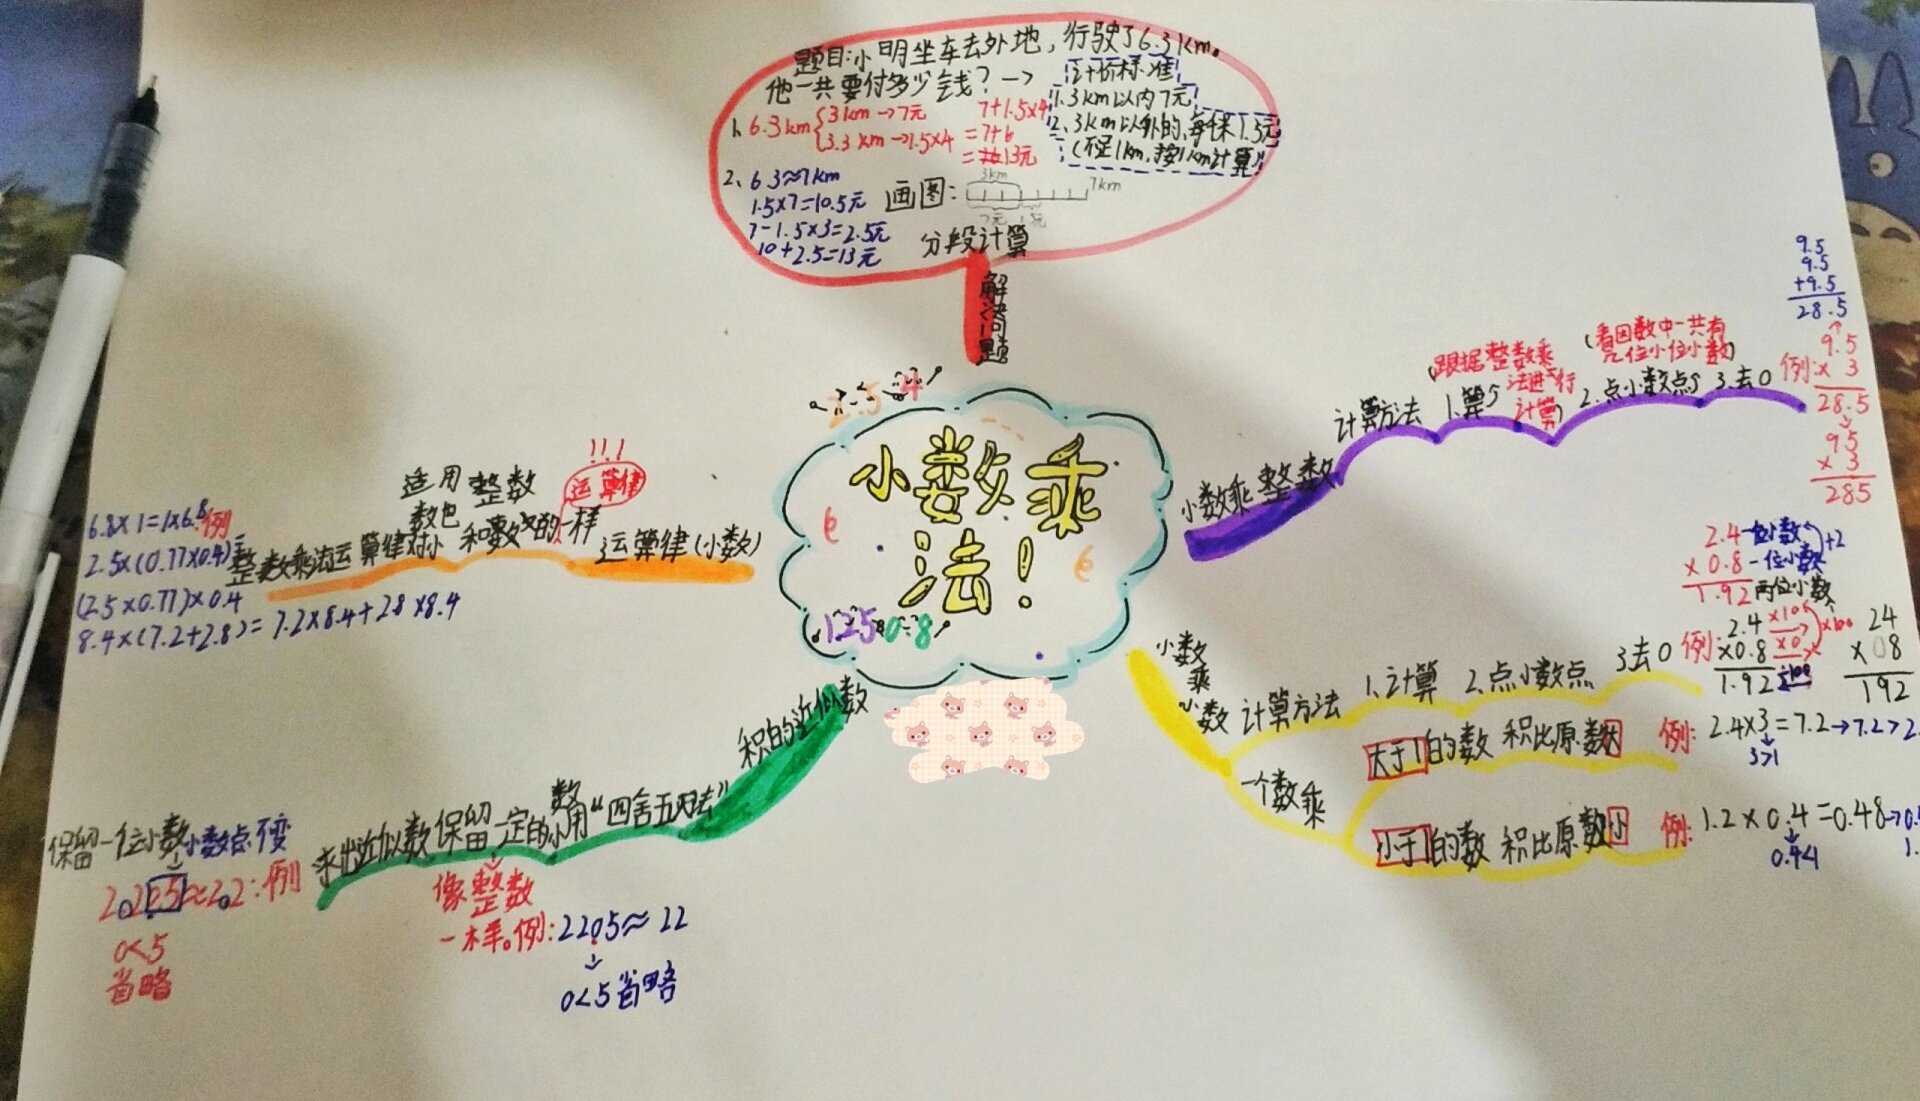 题目:小明坐车去外地，行驶了6.3km。
他一共要付多少钱？→
计价标准
1.3km以内7元
2、3km以外的，每千米1.5元
(不足1km，按1km计算)
1、6.3km
3km→7元
3.3km→1.5×4
7+1.5×4
=7+6
=13元
2、6.3≈7km
1.5×7=10.5元
7-1.5×3=2.5元
10+2.5=13元
画图:
3km
7km
7元
1.5元
分段计算
解决问题
小数乘
法!
7.5
4
6
6
125
0.8
小数乘整数
计算方法
1.算
(跟据整数乘
法进行
计算)
2.点小数点
(看因数中一共有
几位小位小数)
3.去0
9.5
9.5
+9.5
28.5
例:
9.5
× 3
28.5
95
× 3
285
小数
乘
小数
计算方法
1.计算
2.点小数点
3去0
2.4一位小数
×0.8一位小数
+2
1.92两位小数
例:
2.4
×0.8
1.92
×10
×100
÷100
24
×08
192
一个数乘
大于1的数 积比原数大
例: 2.4×3=7.2→7.2>2.
3>1
小于1的数 积比原数小
例: 1.2×0.4=0.48→0.
0.4<1
1.
积的近似数
求出近似数保留一定的小数用“四舍五入法”
保留一位小数小数点不变
2.205≈2.2:例
0<5
省略
像整数
一样。例:2205≈22
0<5省略
运算律(小数)
和整数的一样
运算律
!!!
整数乘法运算律对小数也适用
整数
例
6.8×1=1×6.8
2.5×(0.77×0.4)=
(2.5×0.77)×0.4
8.4×(7.2+2.8)=7.2×8.4+2.8×8.4